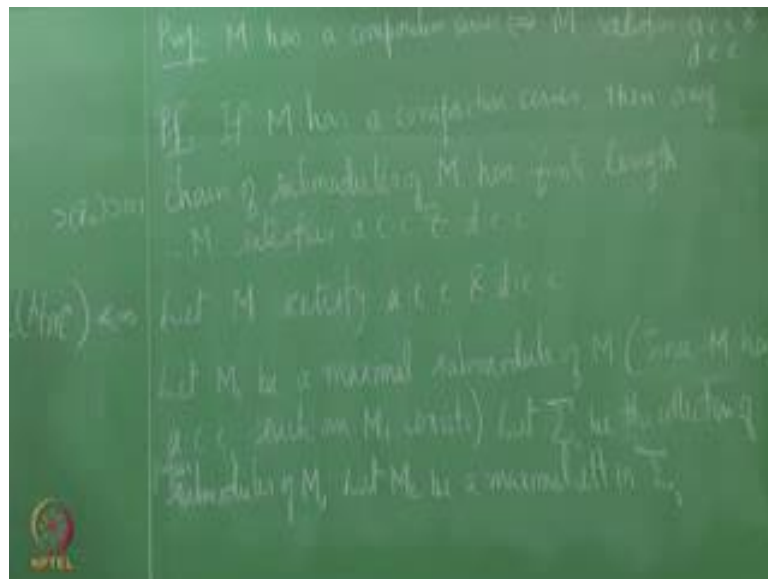 Prop: M has a composition series ⇔ M satisfies a c c &
d c c
Pf: If M has a composition series, then any
chain of submodules of M has finite length
∴ M satisfies a c c & d c c
Let M satisfy a c c & d c c
Let M₁ be a maximal submodule of M (Since M has
a c c such an M₁ exists) Let Σ₁ be the collection of
submodules of M₁ Let M₂ be a maximal elt in Σ₁
NPTEL